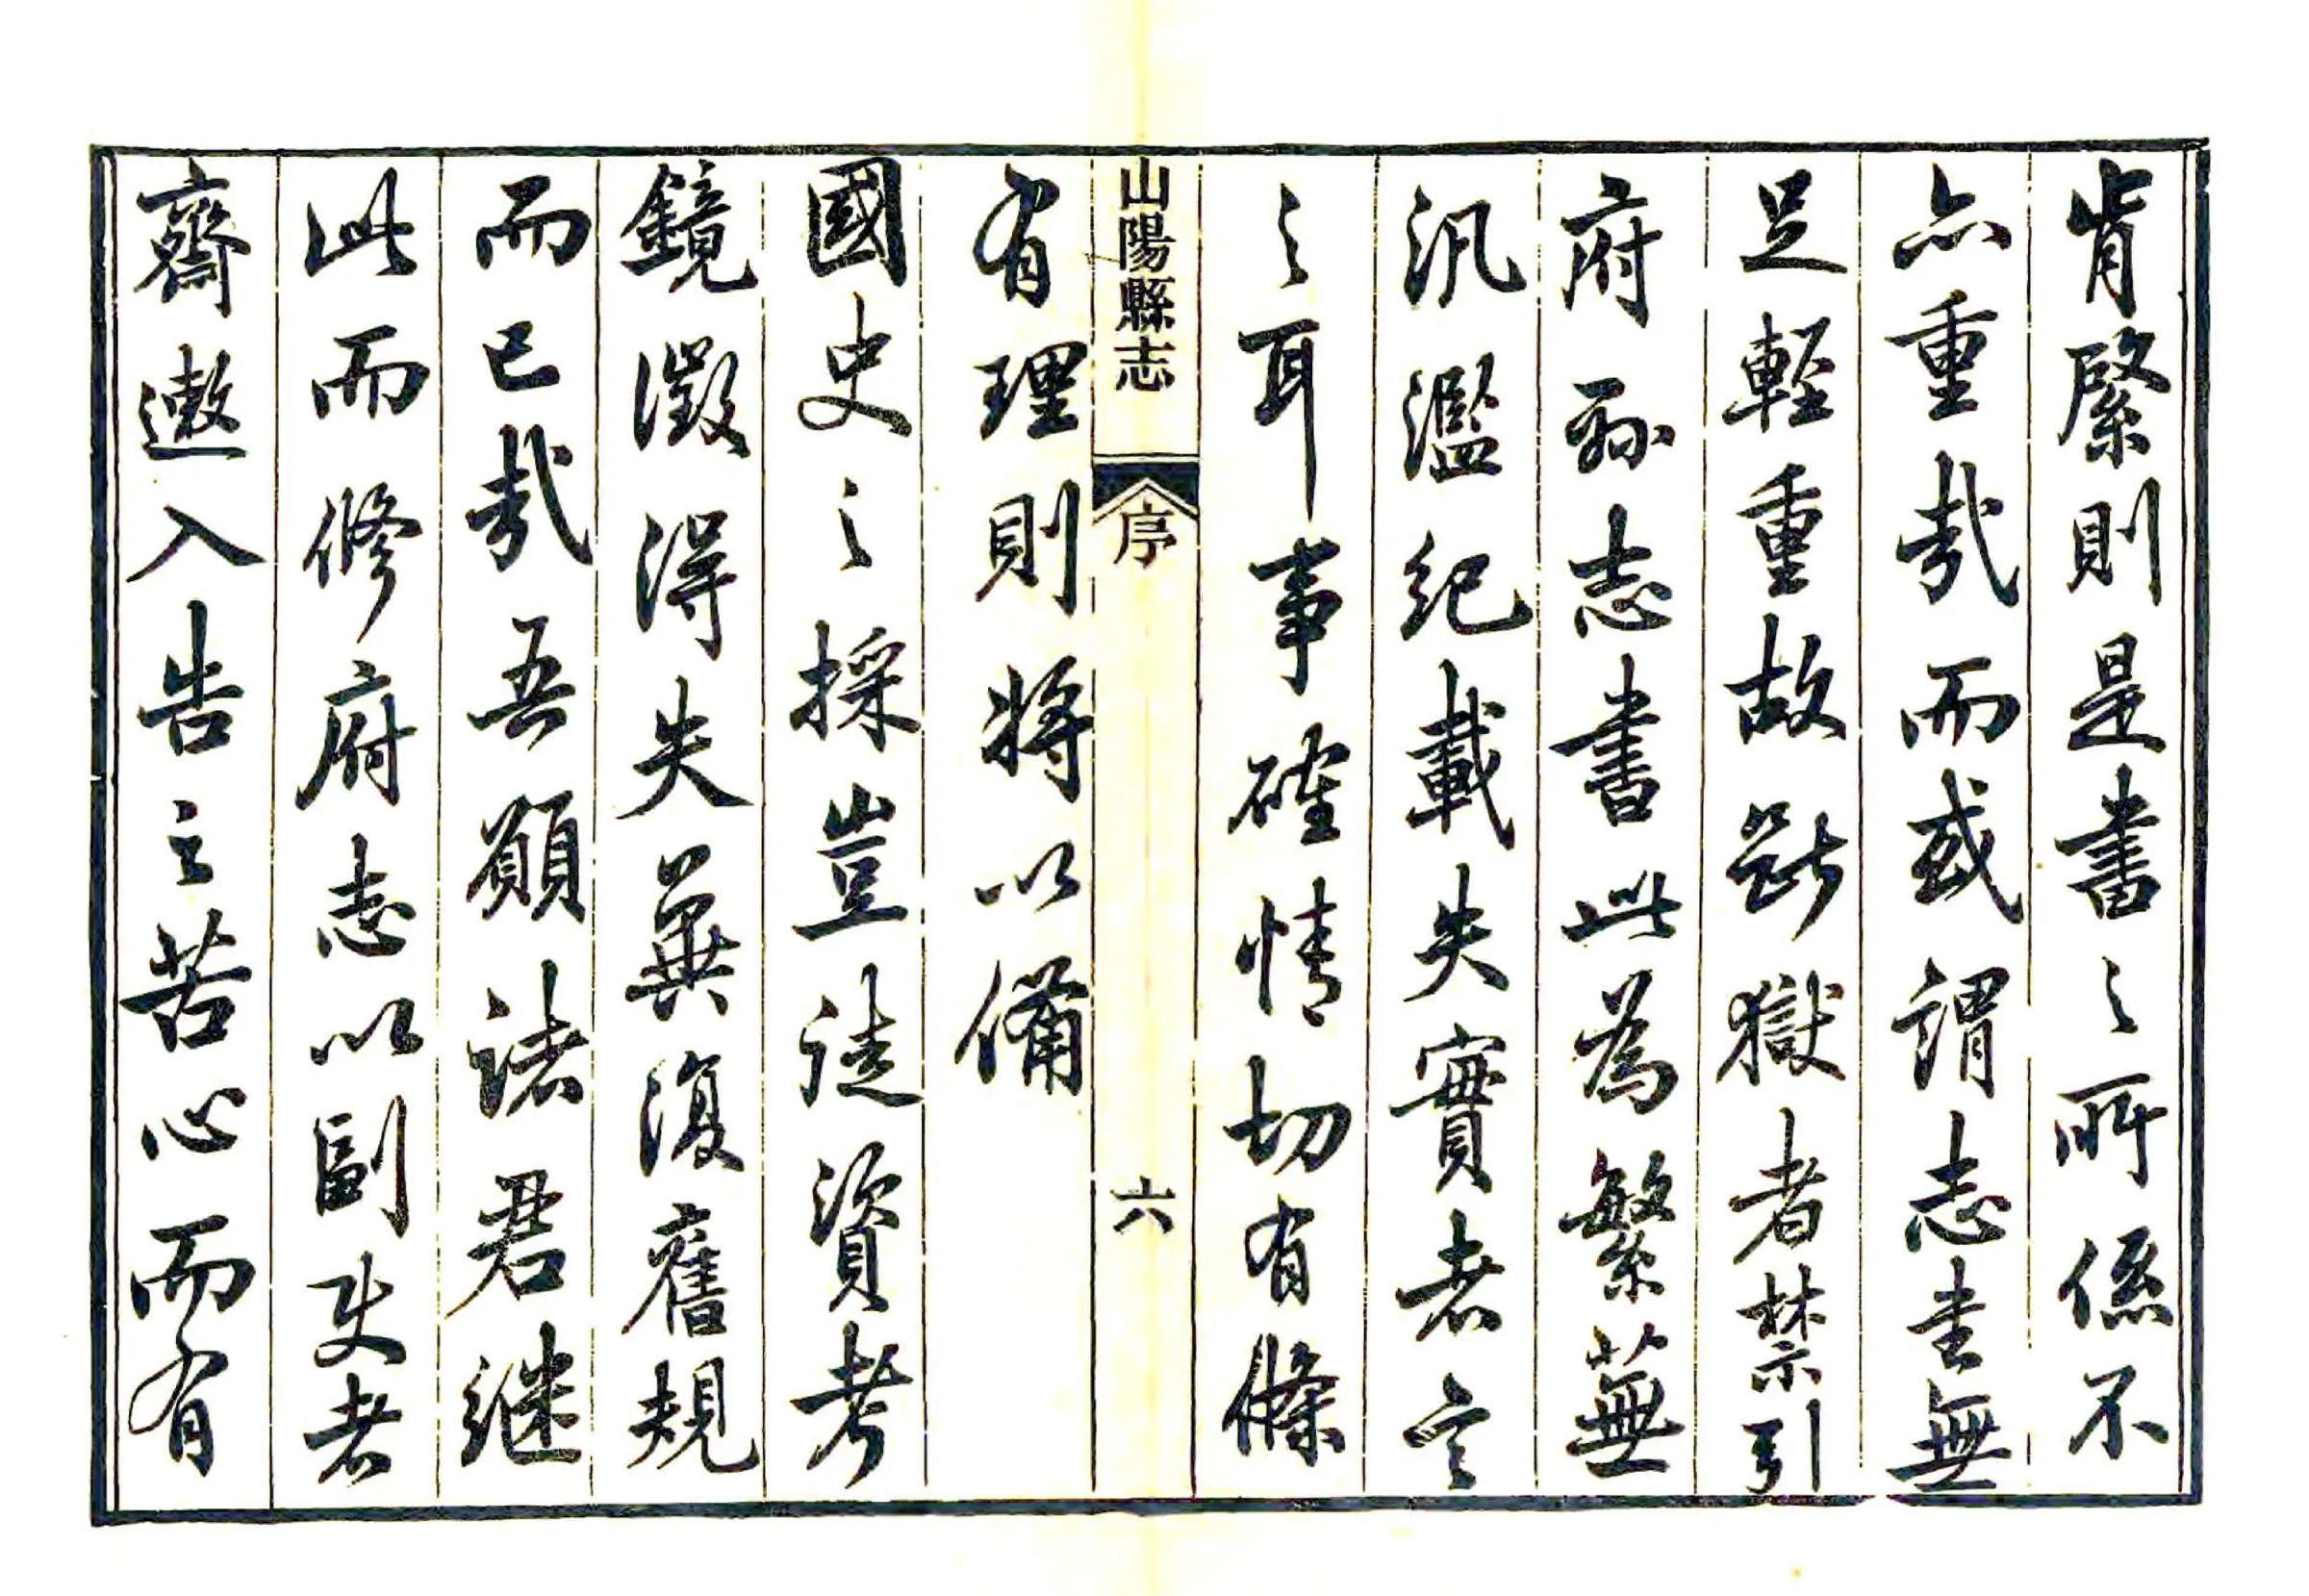 肯綮則是書之所係不
亦重哉而或謂志書無
足輕重故斷獄者禁引
府縣志書此為繁蕪
汎濫紀載失實者言
之耳事確情切有條
山陽縣志 序 六
有理則將以備
國史之採豈徒資考
鏡徵得失冀復舊規
而已哉吾願諸君繼
此而修府志以副使者
齋遬入告之苦心而有